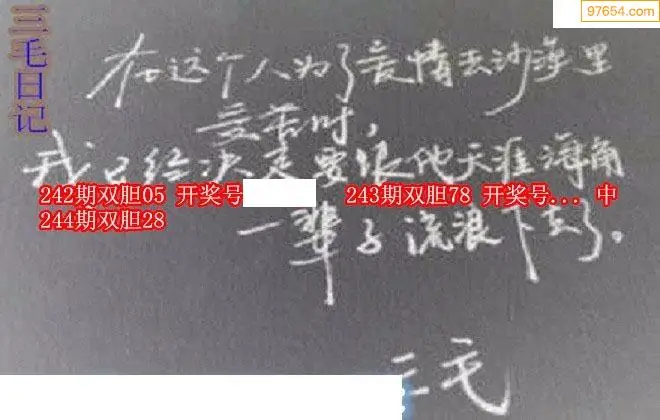 97654.com
三毛日记
在这个人为了爱情去沙漠里
受苦时，
我已经决定要跟他天涯海角
242期双胆05 开奖号 243期双胆78 开奖号... 中
244期双胆28
一辈子流浪下去了。
三毛